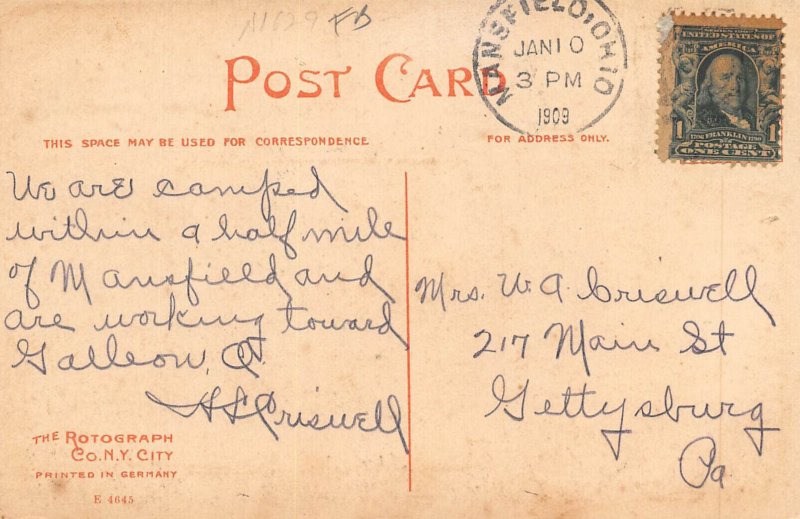 A1629 FB
POST CARD
MANSFIELD, OHIO
JAN 10
3 PM
1909
SERIES 1902
UNITED STATES OF
AMERICA
1 1706 FRANKLIN 1790 1
POSTAGE
ONE CENT
THIS SPACE MAY BE USED FOR CORRESPONDENCE
FOR ADDRESS ONLY.
We are camped
within a half mile
of Mansfield and
are working toward
Galleon, O.
H S Criswell
Mrs. W. A. Criswell
217 Main St
Gettysburg
Pa
THE ROTOGRAPH
CO. N.Y. CITY
PRINTED IN GERMANY
E 4645